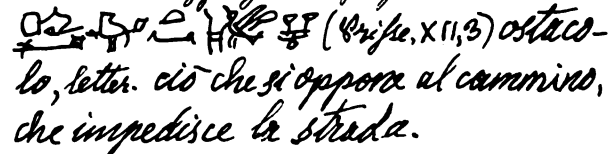 (Prisse, XII, 3) ostaco-
lo, letter. ciò che si oppone al cammino,
che impedisce la strada.